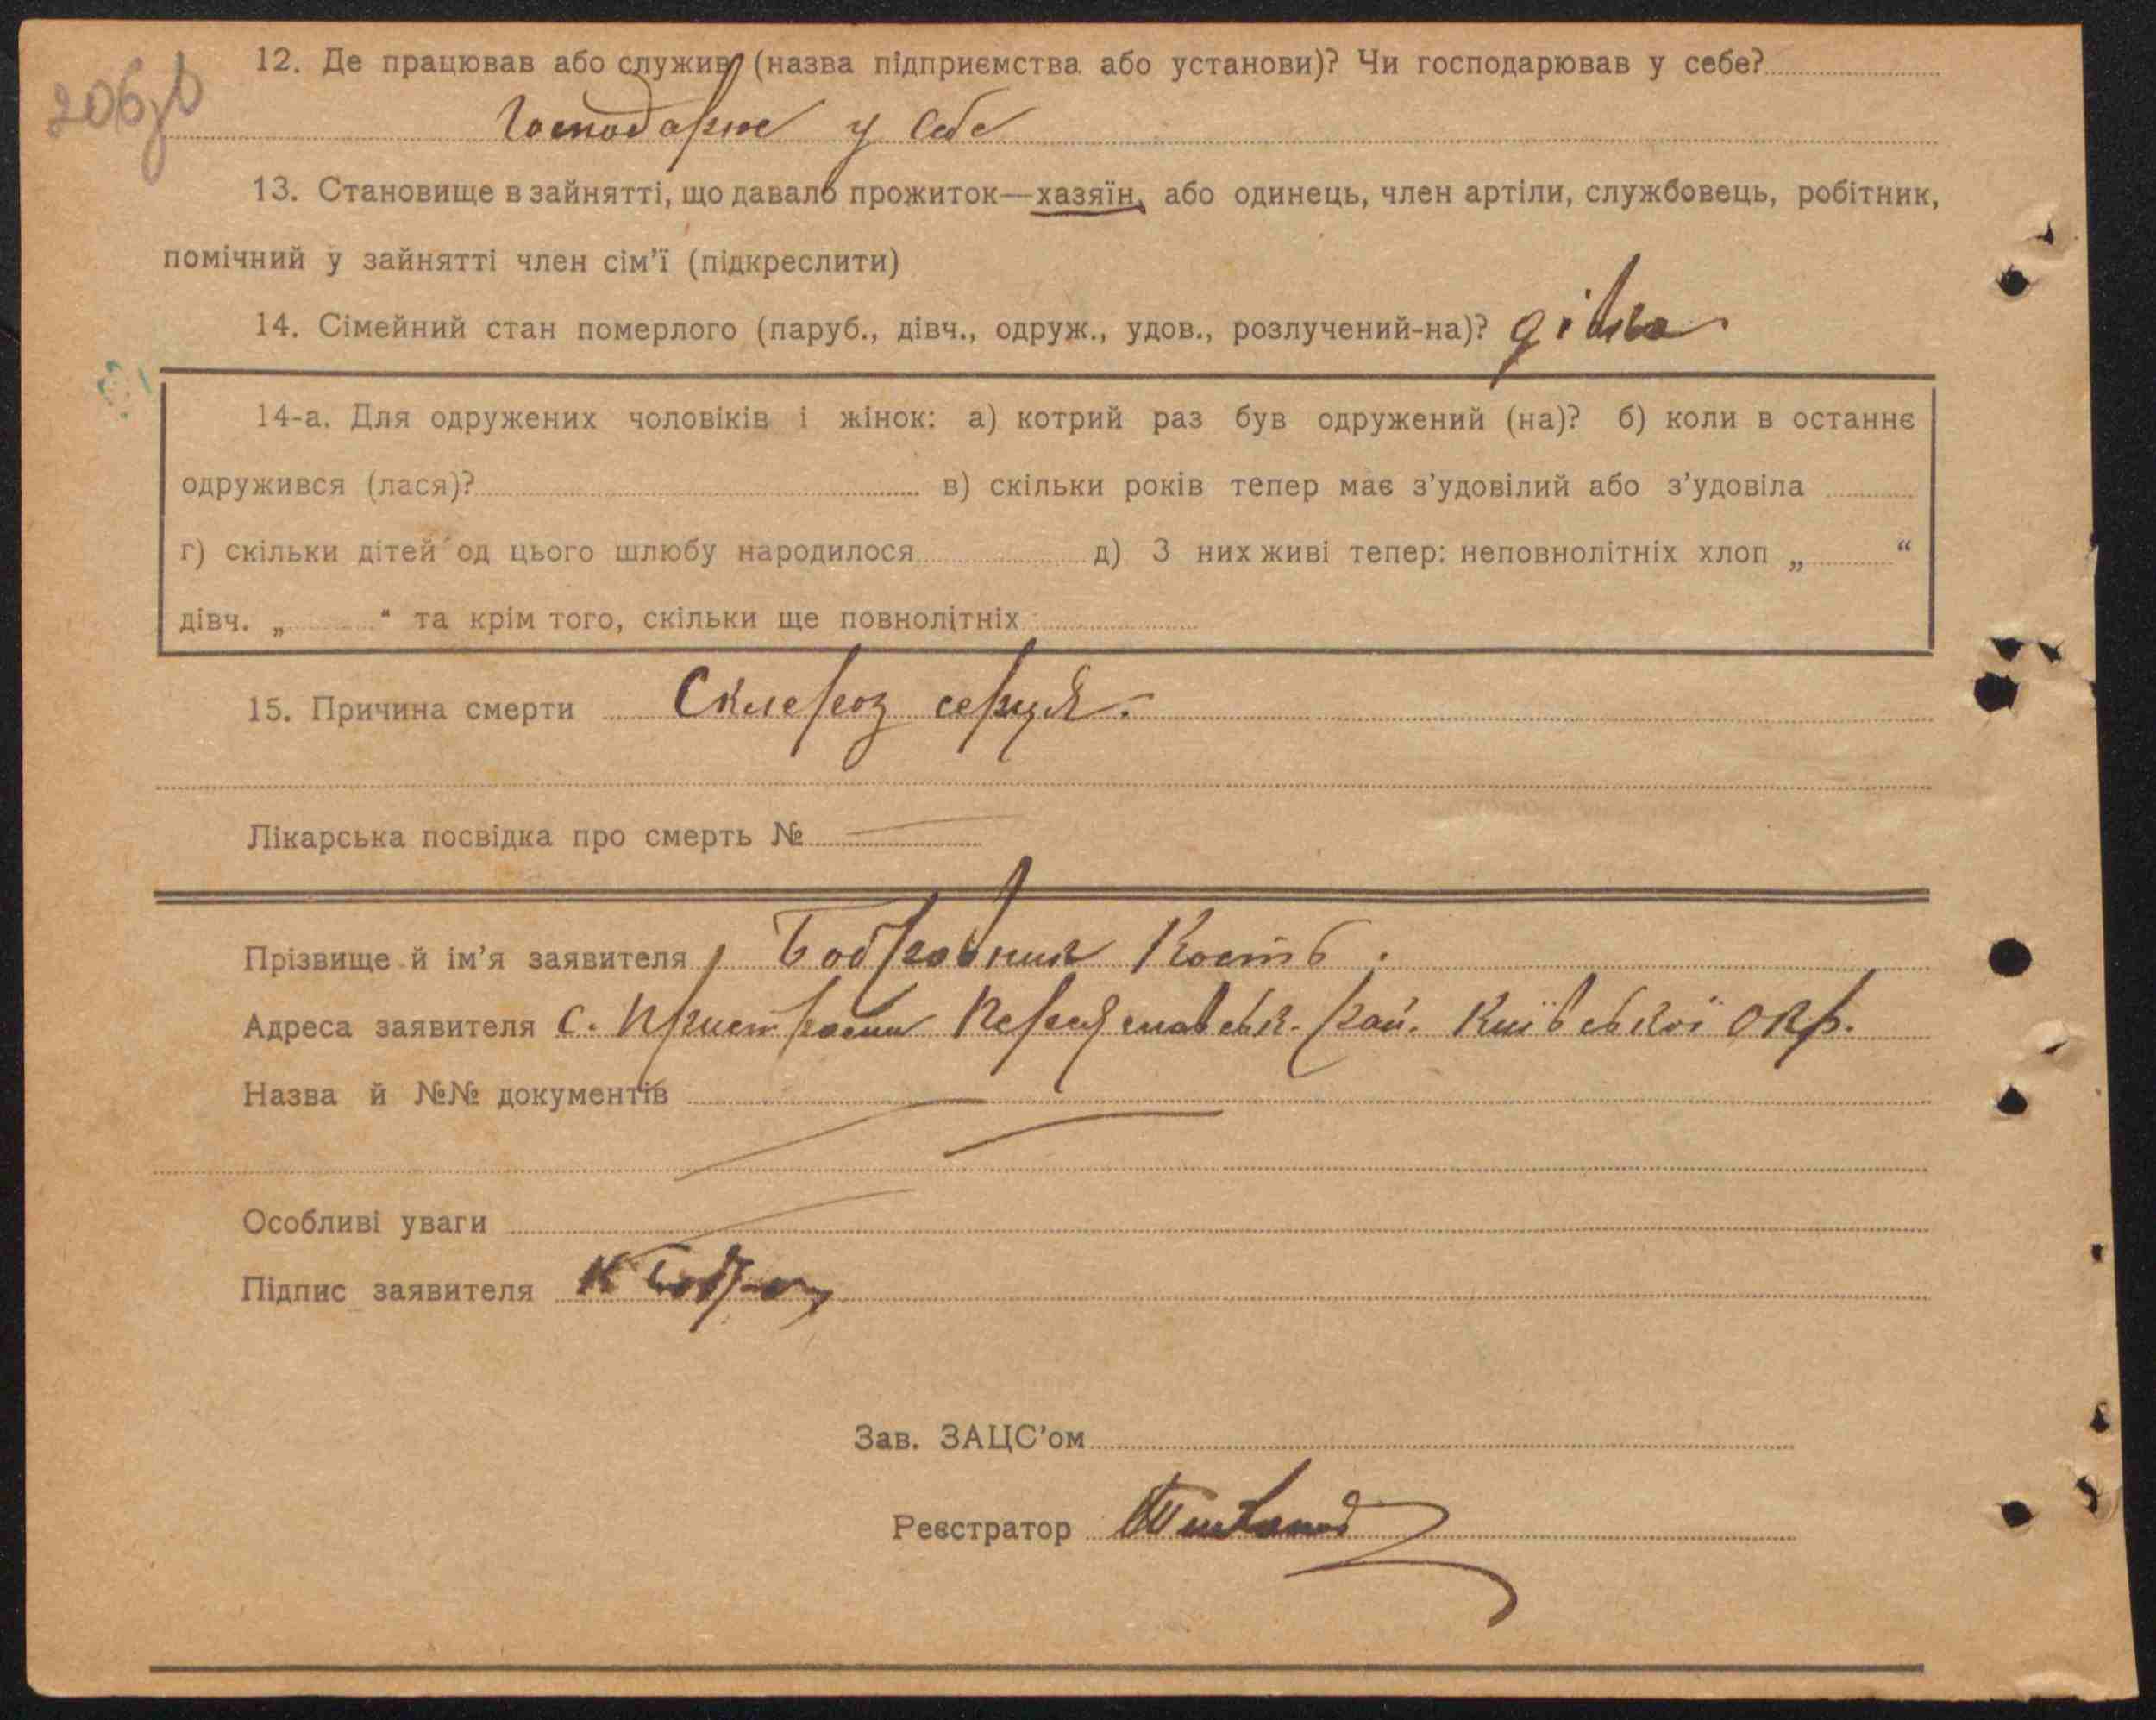 206зв
12. Де працював або служив (назва підприємства або установи)? Чи господарював у себе?
Господарює у себе
13. Становище в зайнятті, що давало прожиток—хазяїн, або одинець, член артіли, службовець, робітник,
помічний у зайнятті член сім'ї (підкреслити)
14. Сімейний стан померлого (паруб., дівч., одруж., удов., розлучений-на)? дівка
14-а. Для одружених чоловіків і жінок: а) котрий раз був одружений (на)? б) коли в останнє
одружився (лася)? в) скільки років тепер має з'удовілий або з'удовіла
г) скільки дітей од цього шлюбу народилося д) З них живі тепер: неповнолітніх хлоп „ “
дівч. „ “ та крім того, скільки ще повнолітніх
15. Причина смерти Склероз серця.
Лікарська посвідка про смерть №
Прізвище й ім'я заявителя Бобровник Кость.
Адреса заявителя с. Пристроми Переяславськ. рай. Київської окр.
Назва й №№ документів
Особливі уваги
Підпис заявителя К Бобров
Зав. ЗАЦС'ом
Реєстратор